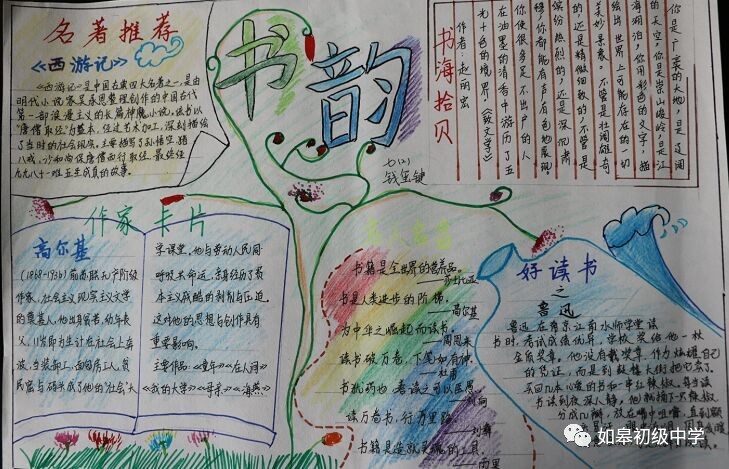 名著推荐
《西游记》
《西游记》是中国古典四大名著之一,是由
明代小说家吴承恩整理创作的中国古代
第一部浪漫主义的长篇神魔小说。该书以
"唐僧取经"为蓝本,经过艺术加工,深刻描绘
了当时的社会现实。主要描写了孙悟空、猪
八戒、沙和尚保唐僧西行取经,最终住
九九八十一难五圣成真的故事。
书韵
七(2)
钱呈键
书海拾贝
作者:赵丽宏
你是广袤的大地,是辽阔
的天空,你是崇山峻岭,是江
海湖泊,你用彩色的文字,描
绘出世界上可能存在的一切
美妙景象。不管是壮阔雄奇
的,还是精微细致的,不管是
缤纷热烈的,还是深沉肃
穆,你都能有声有色地展现。
你使很多足不出户的人
在油墨的清香中游历了五
光十色的境界。《致文学》
作家卡片
高尔基
(1868-1936)前苏联无产阶级
作家,社会主义现实主义文学
的奠基人。他出身贫苦,幼年丧
父,11岁即为生计在社会上奔
波,当装卸工、面包房工人,贫
民窟与码头成了他的"社会"大
学课堂。他与劳动人民同
呼吸共命运,亲身经历了资
本主义残酷的剥削与压迫。
这对他的思想与创作具有
重要影响。
主要作品:《童年》《在人间》
《我的大学》《母亲》《海燕》
名人名言
书籍是全世界的营养品。
——莎士比亚
书是人类进步的阶梯。
——高尔基
为中华之崛起而读书。
——周恩来
读书破万卷,下笔如有神。
——杜甫
书犹药也,善读之可以医愚。
——刘向
读万卷书,行万里路。
——刘彝
书籍是造就灵魂的工具。
——雨果
好读书
之
鲁迅
鲁迅在南京江南水师学堂读
书时,考试成绩优异,学校奖给他一枚
金质奖章。他没有戴奖章,作为炫耀自己
的凭证,而是到鼓楼大街把它卖了,
买回几本心爱的书和一串红辣椒。每当读
书读到夜深人静,他就摘下一只辣椒
分成几片,放在嘴中咀嚼,直到额
如皋初级中学